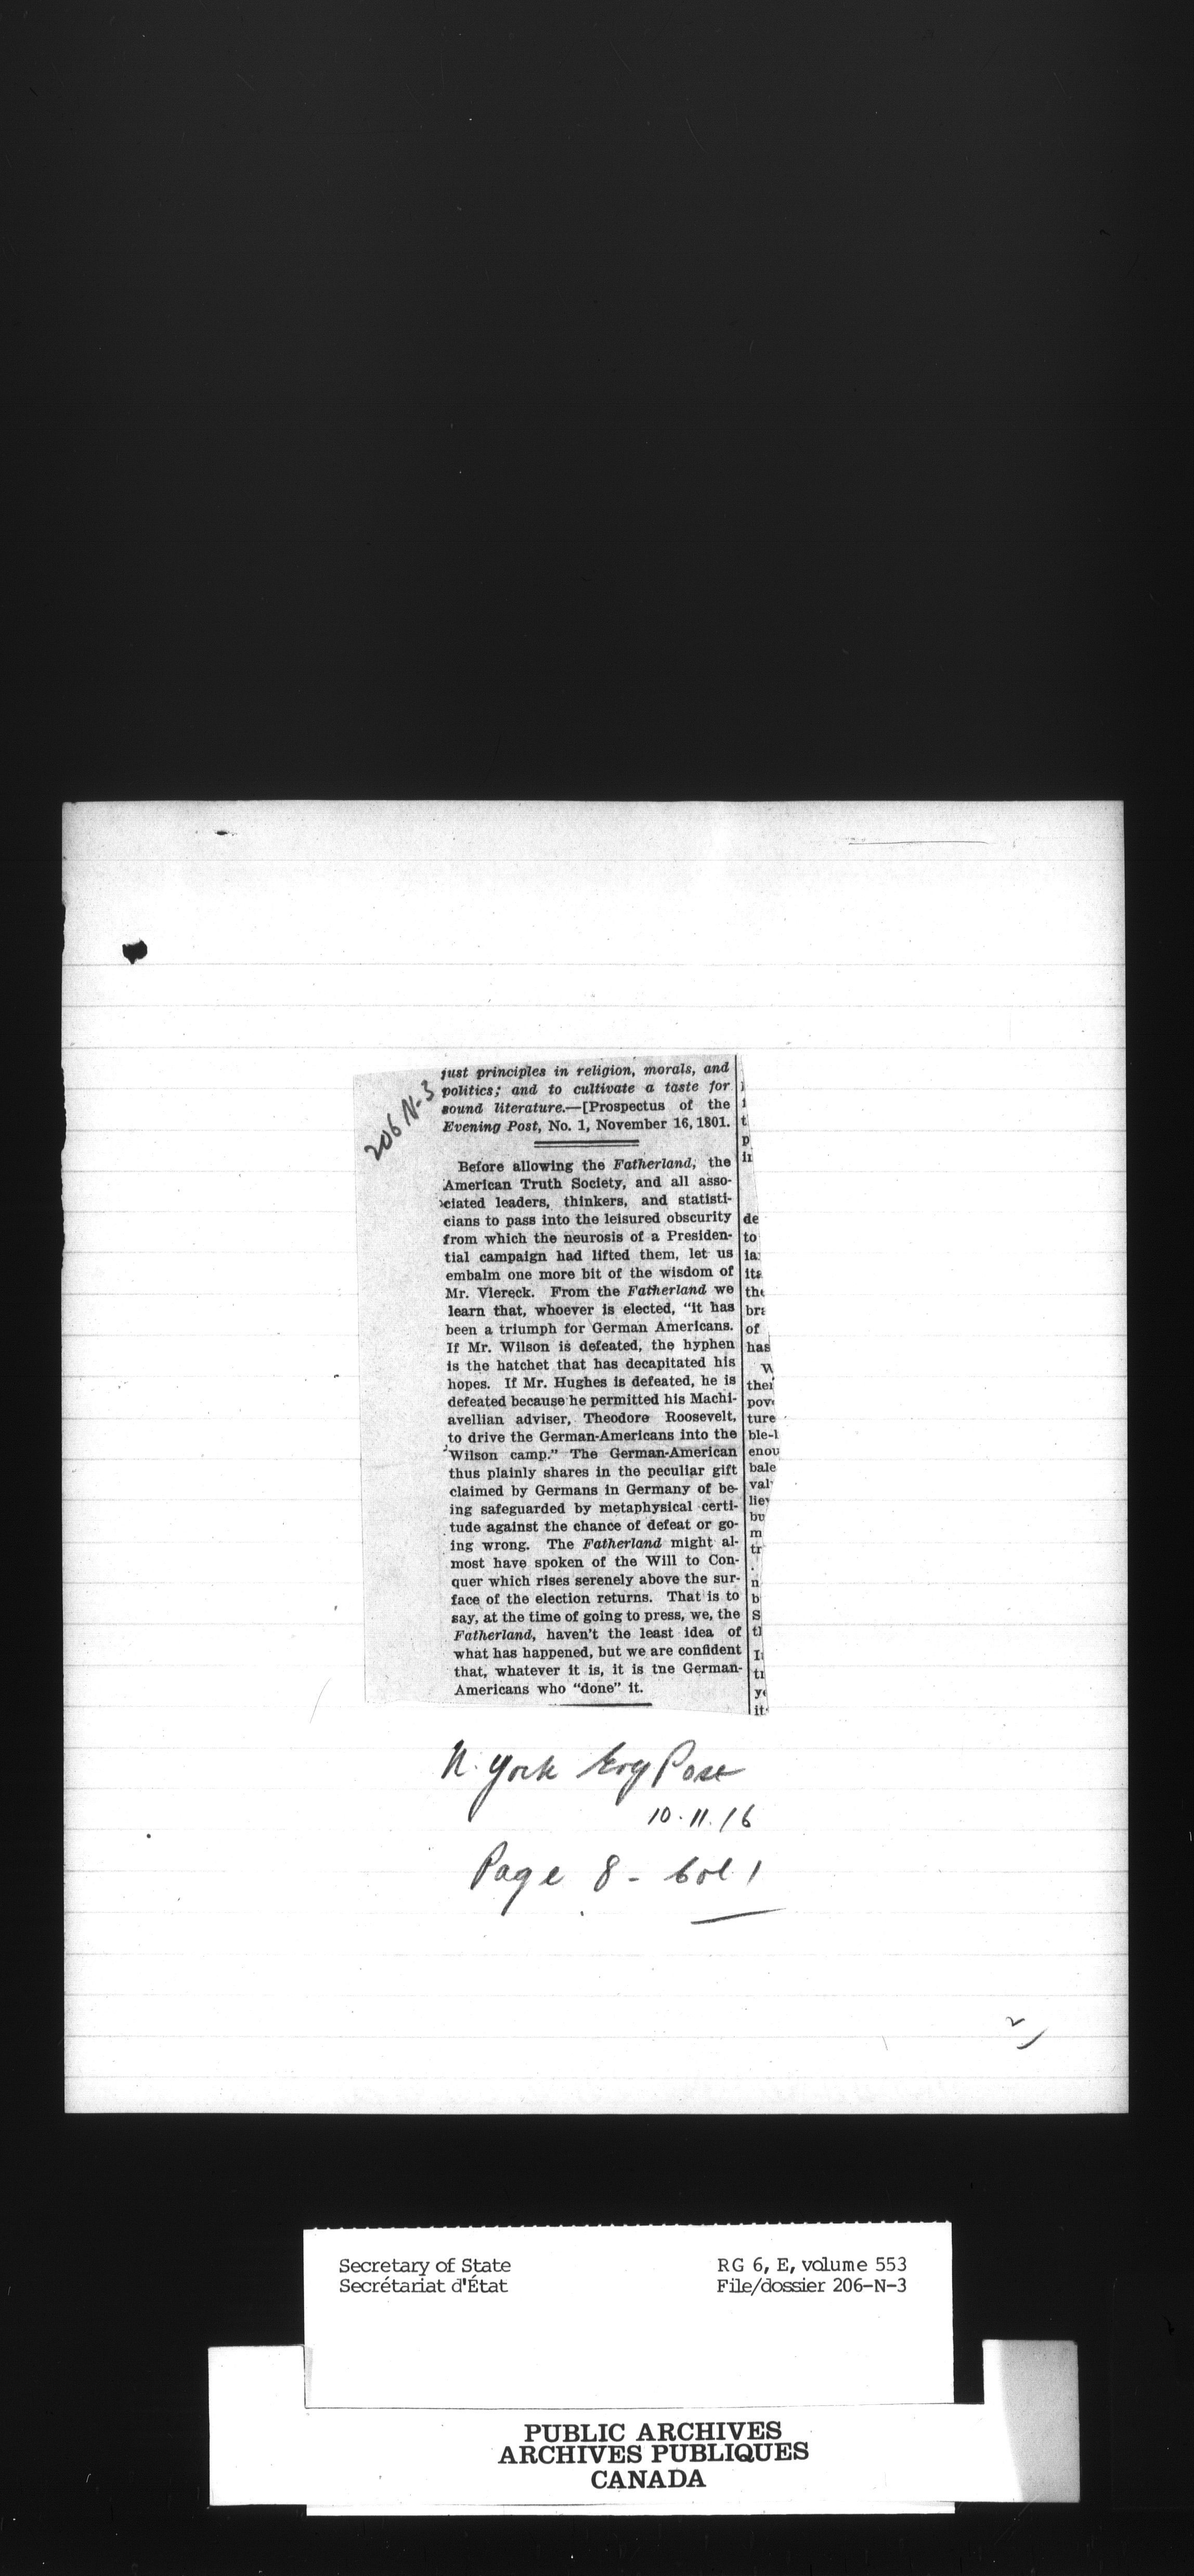 206 N-3
just principles in religion, morals, and
politics; and to cultivate a taste for
sound literature.—[Prospectus of the
Evening Post, No. 1, November 16, 1801.
Before allowing the Fatherland, the
American Truth Society, and all asso-
ciated leaders, thinkers, and statisti-
cians to pass into the leisured obscurity
from which the neurosis of a Presiden-
tial campaign had lifted them, let us
embalm one more bit of the wisdom of
Mr. Viereck. From the Fatherland we
learn that, whoever is elected, "it has
been a triumph for German Americans.
If Mr. Wilson is defeated, the hyphen
is the hatchet that has decapitated his
hopes. If Mr. Hughes is defeated, he is
defeated because he permitted his Machi-
avellian adviser, Theodore Roosevelt,
to drive the German-Americans into the
Wilson camp." The German-American
thus plainly shares in the peculiar gift
claimed by Germans in Germany of be-
ing safeguarded by metaphysical certi-
tude against the chance of defeat or go-
ing wrong. The Fatherland might al-
most have spoken of the Will to Con-
quer which rises serenely above the sur-
face of the election returns. That is to
say, at the time of going to press, we, the
Fatherland, haven't the least idea of
what has happened, but we are confident
that, whatever it is, it is tne German-
Americans who "done" it.
de
to
ia
its
the
bra
of
has
thei
pov
ture
ble-l
enou
bale
val
lie
bu
m
tr
n
b
S
N. York Evg Post
10.11.16
Page 8 - Col 1
2
Secretary of State
Secrétariat d'État
RG 6, E, volume 553
File/dossier 206-N-3
PUBLIC ARCHIVES
ARCHIVES PUBLIQUES
CANADA